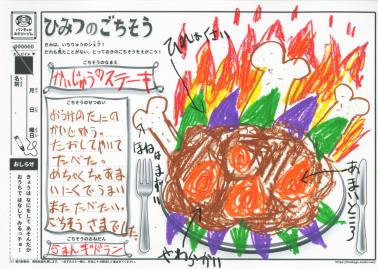 ひみつのごちそう
きみは、いちりゅうのシェフ!
だれも見たことがない、とっておきのごちそうをえがこう!
ごちそうのなまえ
かいじゅうのステーキ
ごちそうのせつめい
おうけのたにの
かいじゅう。
たおしてやいて
たべた。
めちゃくちゃあま
いにくでうまい
またたべたい。
ごちそうさまでした
ごちそうのおねだん
名前
月
日
曜日
おしらせ
きょうは なにをして あそんだか
おうちで はなして みるっチョ!
ほねはまずい
あまいところ
やわらかい